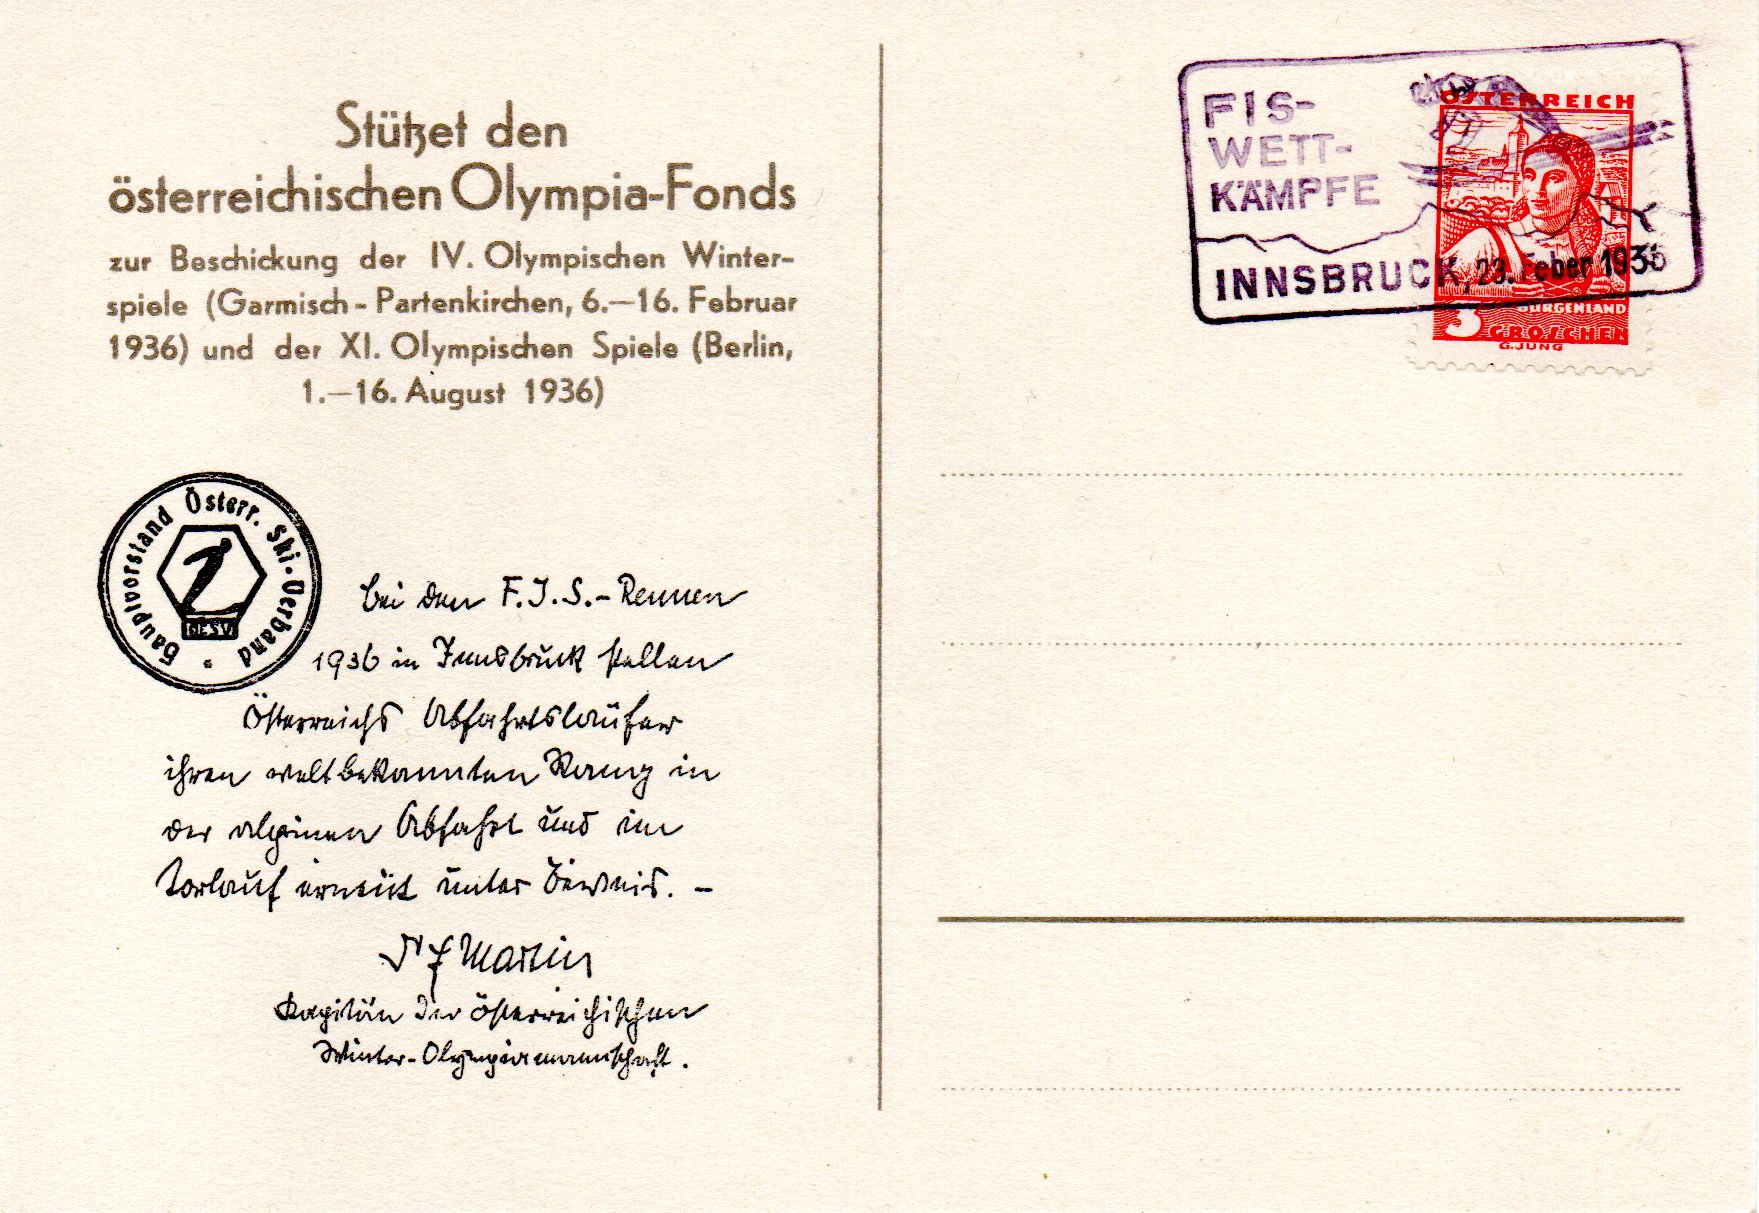 Stützet den
österreichischen Olympia-Fonds
zur Beschickung der IV. Olympischen Winter-
spiele (Garmisch-Partenkirchen, 6.—16. Februar
1936) und der XI. Olympischen Spiele (Berlin,
1.—16. August 1936)
Hauptvorstand Österr. Ski-Verband
OESV
Bei den F.I.S.-Rennen
1936 in Innsbruck stellen
Österreichs Abfahrtsläufer
ihren weltbekannten Rang in
der alpinen Abfahrt und im
Torlauf erneut unter Beweis. –
Martin
Kapitän der österreichischen
Winter-Olympiamannschaft.
FIS-
WETT-
KÄMPFE
INNSBRUCK, 23. Feber 1936
ÖSTERREICH
BURGENLAND
3 GROSCHEN
G. JUNG